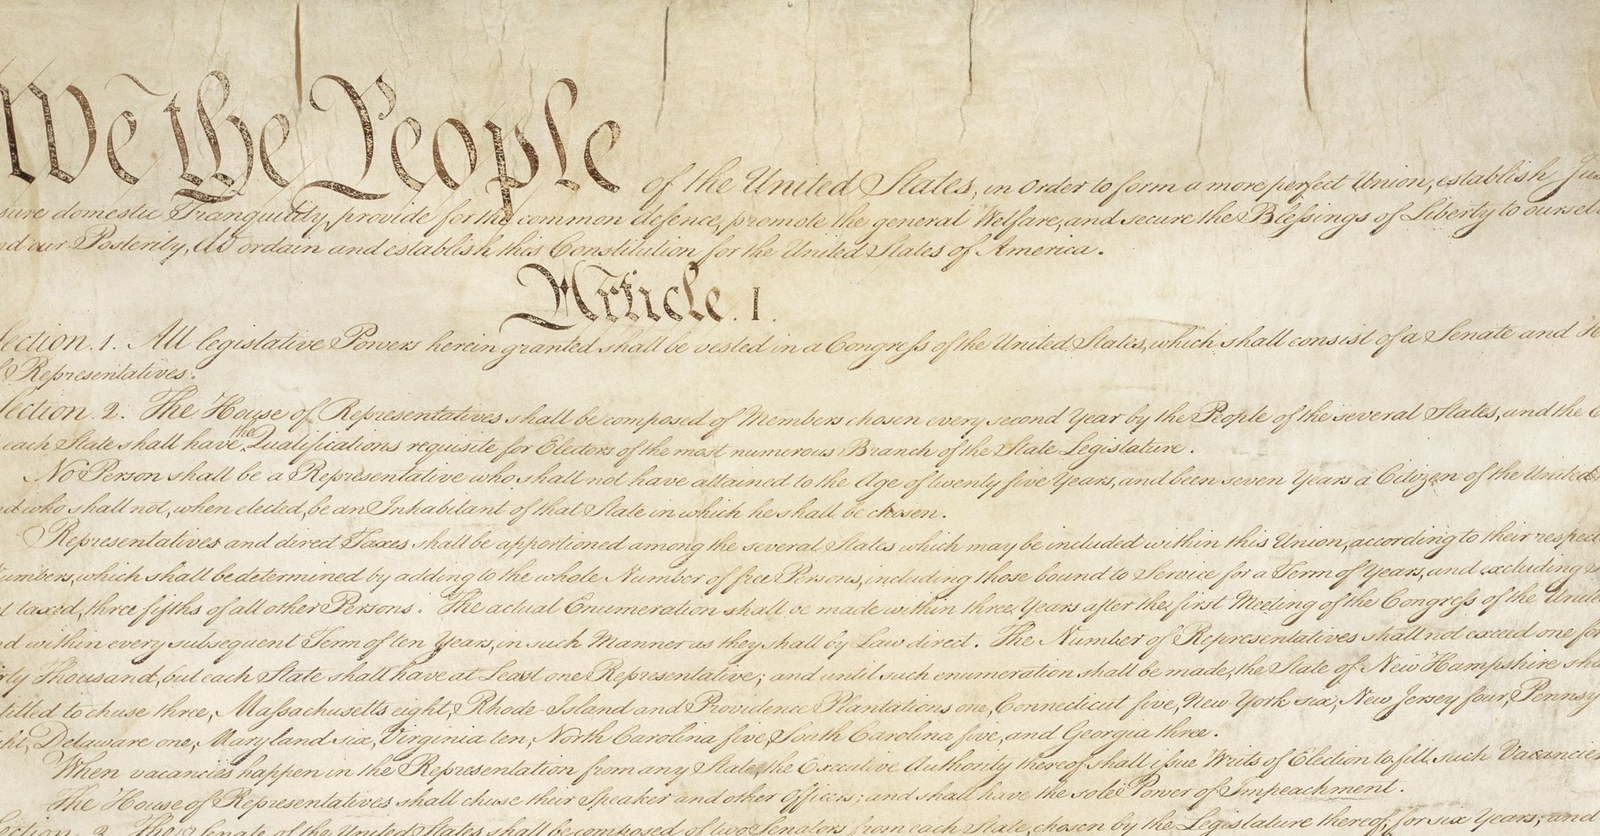 We the People of the United States, in Order to form a more perfect Union, establish Jus
sure domestic Tranquility, provide for the common defence, promote the general Welfare, and secure the Blessings of Liberty to oursel
nd our Posterity, do ordain and establish this Constitution for the United States of America.
Article. I.
Section. 1. All legislative Powers herein granted shall be vested in a Congress of the United States, which shall consist of a Senate and
Representatives.
Section. 2. The House of Representatives shall be composed of Members chosen every second Year by the People of the several States, and the
each State shall have the Qualifications requisite for Electors of the most numerous Branch of the State Legislature.
No Person shall be a Representative who shall not have attained to the Age of twenty five Years, and been seven Years a Citizen of the United
nd who shall not, when elected, be an Inhabitant of that State in which he shall be chosen.
Representatives and direct Taxes shall be apportioned among the several States which may be included within this Union, according to their respect
umbers, which shall be determined by adding to the whole Number of free Persons, including those bound to Service for a Term of Years, and excluding
t taxed, three fifths of all other Persons. The actual Enumeration shall be made within three Years after the first Meeting of the Congress of the United
nd within every subsequent Term of ten Years, in such Manner as they shall by Law direct. The Number of Representatives shall not exceed one for
rty Thousand, but each State shall have at Least one Representative; and until such enumeration shall be made, the State of New Hampshire sha
titled to chuse three, Massachusetts eight, Rhode-Island and Providence Plantations one, Connecticut five, New-York six, New Jersey four, Pennsy
ght, Delaware one, Maryland six, Virginia ten, North Carolina five, South Carolina five, and Georgia three.
When vacancies happen in the Representation from any State, the Executive Authority thereof shall issue Writs of Election to fill such Vacancies
The House of Representatives shall chuse their Speaker and other Officers; and shall have the sole Power of Impeachment.
Section. 3. The Senate of the United States shall be composed of two Senators from each State, chosen by the Legislature thereof, for six Years; and